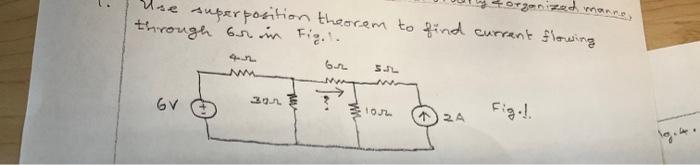 1. Use superposition theorem to find current flowing
through 6Ω in Fig.1.
organized manner
4Ω
6Ω
5Ω
6V
30Ω
?
10Ω
2A
Fig.1.